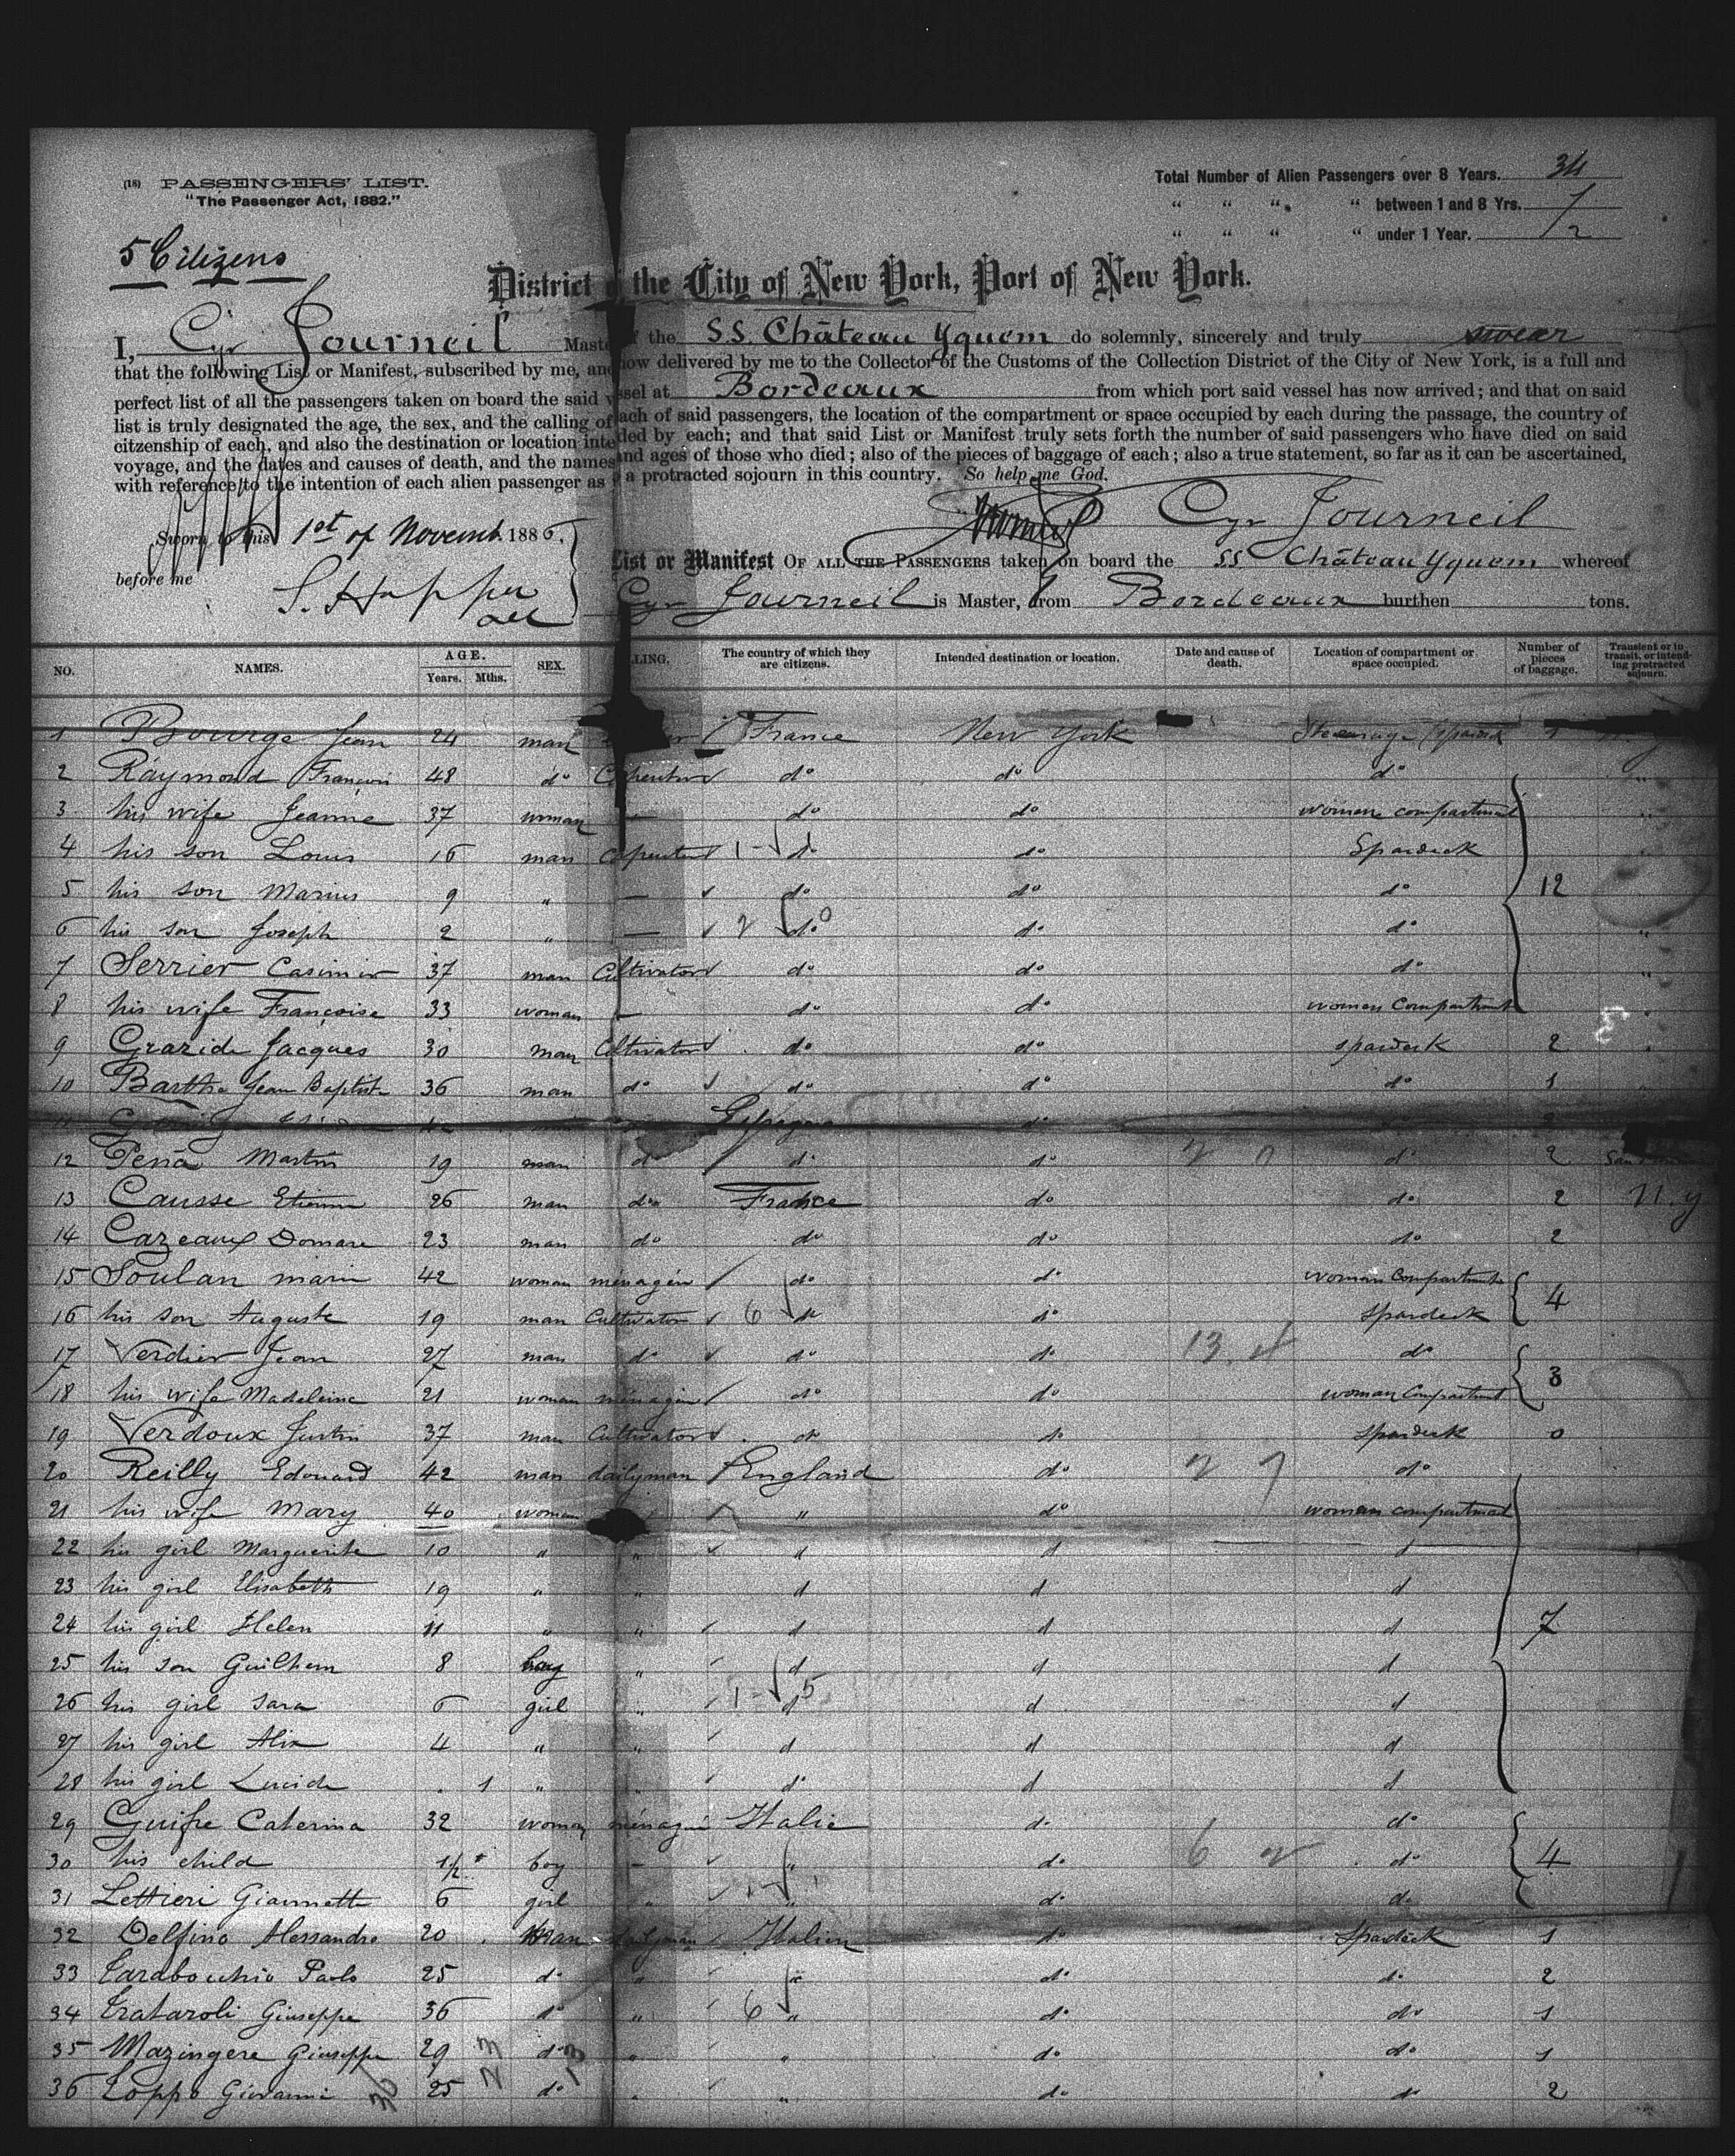 (18) PASSENGERS' LIST.
"The Passenger Act, 1882."
Total Number of Alien Passengers over 8 Years. 34
" " " " between 1 and 8 Yrs.
" " " " under 1 Year. 2
5 Citizens
District of the City of New York, Port of New York.
I, Cyr Journeil Master of the S.S. Château Yquem do solemnly, sincerely and truly swear
that the following List or Manifest, subscribed by me, and now delivered by me to the Collector of the Customs of the Collection District of the City of New York, is a full and
perfect list of all the passengers taken on board the said vessel at Bordeaux from which port said vessel has now arrived; and that on said
list is truly designated the age, the sex, and the calling of each of said passengers, the location of the compartment or space occupied by each during the passage, the country of
citzenship of each, and also the destination or location intended by each; and that said List or Manifest truly sets forth the number of said passengers who have died on said
voyage, and the dates and causes of death, and the names and ages of those who died; also of the pieces of baggage of each; also a true statement, so far as it can be ascertained,
with reference to the intention of each alien passenger as to a protracted sojourn in this country. So help me God.
Cyr Journeil
Sworn to this 1st of Novemb. 1886,
before me
List or Manifest OF ALL THE PASSENGERS taken on board the SS Château Yquem whereof
Cyr Journeil is Master, from Bordeaux burthen tons.
NO. NAMES. AGE. Years. Mths. SEX. LLING. The country of which they are citizens. Intended destination or location. Date and cause of death. Location of compartment or space occupied. Number of pieces of baggage. Transient or in transit, or intending protracted sojourn.
1 Bourge Jean 24 man France New York Steerage 1
2 Raymond François 48 do Carpenter do do do
3 his wife Jeanne 37 woman — do do women compartment
4 his son Louis 16 man carpenter do do Spardeck
5 his son Marius 9 " — do do do 12
6 his son Joseph 2 " — do do do "
7 Serrier Casimir 37 man Cultivator do do do "
8 his wife Françoise 33 woman — do do women Compartment
9 Grazide Jacques 30 man Cultivator do do spardeck 2
10 Barthe Jean Baptiste 36 man do do do do 1
11 do
12 Pena Martin 19 man do do do do 2
13 Causse Etienne 26 man do France do do 2 N.Y
14 Cazeaux 23 man do do do do 2
15 Soulan marie 42 woman ménagère do do woman Compartment 4
16 his son Auguste 19 man Cultivator do do Spardeck
17 Verdier Jean 27 man do do do do 3
18 his wife Madeleine 21 woman ménagère do do woman Compartment
19 Verdoux Justin 37 man Cultivator do do spardeck 0
20 Reilly Edouard 42 man dailyman England do do
21 his wife Mary 40 woman " do woman compartment
22 his girl Marguerite 10 " " " d d
23 his girl Elisabeth 19 " " d d d
24 his girl Helen 11 " " d d d 7
25 his son Guilhem 8 boy " d d d
26 his girl Sara 6 girl " d d d
27 his girl Alix 4 " " d d d
28 his girl 1 " d d d
29 Guifre Caterina 32 woman Italie do do 4
30 his child 1/2 boy — " do do
31 Lettieri Giannetta 6 girl " " do do
32 Delfino Alessandro 20 Man dailyman Italien do Spardeck 1
33 Paolo 25 do " " do do 2
34 Giuseppe 36 do " " do do 1
35 Mazingere Giuseppe 29 do " " do do 1
36 Giovanni 25 do " " do do 2